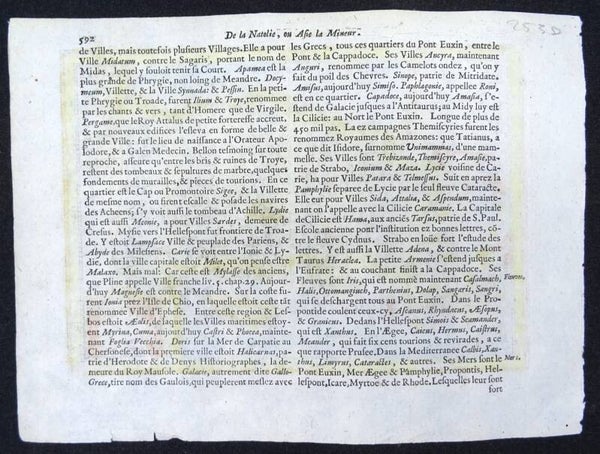 592
De la Natolie, ou Asie la Mineur.
253D
de Villes, mais toutefois plusieurs Villages. Elle a pour
Ville Midatum, contre le Sagaris, portant le nom de
Midas, lequel y souloit tenir sa Court. Apamea est la
plus grande de Phrygie, non loing de Meandre. Docy-
meum, Villette, & la Ville Synnada: & Pessin. En la pe-
tite Phrygie ou Troade, furent Ilium & Troye, renommez
par les chants & vers, tant d'Homere que de Virgile.
Pergame, que le Roy Attalus de petite forteresse accreut,
& par nouveaux edifices l'esleva en forme de belle &
grande Ville: fut le lieu de naissance à l'Orateur Apo-
lodore, & à Galen Medecin. Bellon tesmoing sur toute
reproche, asseure qu'entre les bris & ruines de Troye,
restent des tombeaux & sepultures de marbre, quelques
fondements de murailles, & pieces de tourions. En ce
quartier est le Cap ou Promontoire Sigée, & la Villette
de mesme nom, où firent escalle & posade les navires
des Acheens; s'y voit aussi le tombeau d'Achille. Lydie
qui est aussi Meonie, a pour Villes Sardes, demeure de
Cresus. Mysie vers l'Hellespont fut frontiere de Troa-
de. Y estoit Lampsace Ville & peuplade des Pariens, &
Abyde des Milesiens. Carie se voit entre l'Ionie & Ly-
die, dont la ville capitale estoit Milet, qu'on pense estre
Malaxo. Mais mal: Car ceste est Mylasse des anciens,
que Pline appelle Ville franche liv. 5. chap. 29. Aujour-
d'huy Magnesie est contre le Meandre. Sur la coste fu-
rent Ionia prez l'Isle de Chio, en laquelle estoit ceste tāt
renommée Ville d'Ephese. Entre ceste region & Les-
bos estoit Æolis, de laquelle les Villes maritimes estoyent
Myrina, Cuma, aujourd'huy Castri & Phocea, mainte-
nant Foglia Vecchia. Doris sur la Mer de Carpatie au
Chersonese, dont la premiere ville estoit Halicarnas, pa-
trie d'Herodote & de Denys Historiographes, la de-
meure du Roy Mausole. Galacie, autrement dite Gallo-
Grece, tire nom des Gaulois, qui peuplerent meslez avec
les Grecs, tous ces quartiers du Pont Euxin, entre le
Pont & la Cappadoce. Ses Villes Ancyra, maintenant
Anguri, renommée par les Camelots ondez, qu'on y
fait du poil des Chevres. Sinope, patrie de Mitridate.
Amisus, aujourd'huy Simiso. Paphlagonie, appellee Roni,
est en ce quartier. Capadoce, aujourd'huy Amasia, s'e-
stend de Galacie jusques à l'Antitaurus; au Midy luy est
la Cilicie: au Nort le Pont Euxin. Longue de plus de
450 mil pas. La ez campagnes Themiscyriens furent les
renommez Royaumes des Amazones que Tatianus, a
ce que dit Isidore, surnomme Unimammas, d'une mam-
melle. Ses Villes sont Trebizonde, Themiscyre, Amasie, pa-
trie de Strabo, Iconium & Maza. Lycie voisine de Ca-
rie, ha pour Villes Patara & Telmessus. Suit en aprez la
Pamphylie separee de Lycie par le seul fleuve Cataracte.
Elle eut pour Villes Sida, Attalia, & Aspendum, mainte-
nant on l'appelle avec la Cilicie Caramanie. La Capitale
de Cilicie est Hama, aux anciés Tarsus, patrie de S. Paul.
Escole ancienne pour l'institution ez bonnes lettres, cō-
tre le fleuve Cydnus. Strabo en loüe fort l'estude des
lettres. Y est aussi la Villette Adena, & contre le Mont
Taurus Heraclea. La petite Armenie s'estend jusques a
l'Eufrate: & au couchant finist a la Cappadoce. Ses
Fleuves sont Iris, qui est nommé maintenant Casalmach,
Halis, Ottomangiuch, Parthenius, Dolap, Sangaris, Sangri,
qui se deschargent tous au Pont Euxin. Dans le Pro-
pontide coulent ceux-cy, Ascanus, Rhyndacus, Æsopus,
& Granicus. Dedans l'Hellespont Simois & Scamander,
qui est Xanthus. En l'Ægée, Caicus, Hermus, Caistrus,
Meander, qui fait six cens tourions & revirades, a ce
que rapporte Prusee. Dans la Mediterranee Calbis, Xan-
thus, Limyrus, Cataractes, & autres. Ses Mers sont le
Pont Euxin, Mer Ægee & Pāmphylie, Propontis, Hel-
lespont, Icare, Myrtoe & de Rhode. Lesquelles leur sont
fort
Fleuves.
Mers.